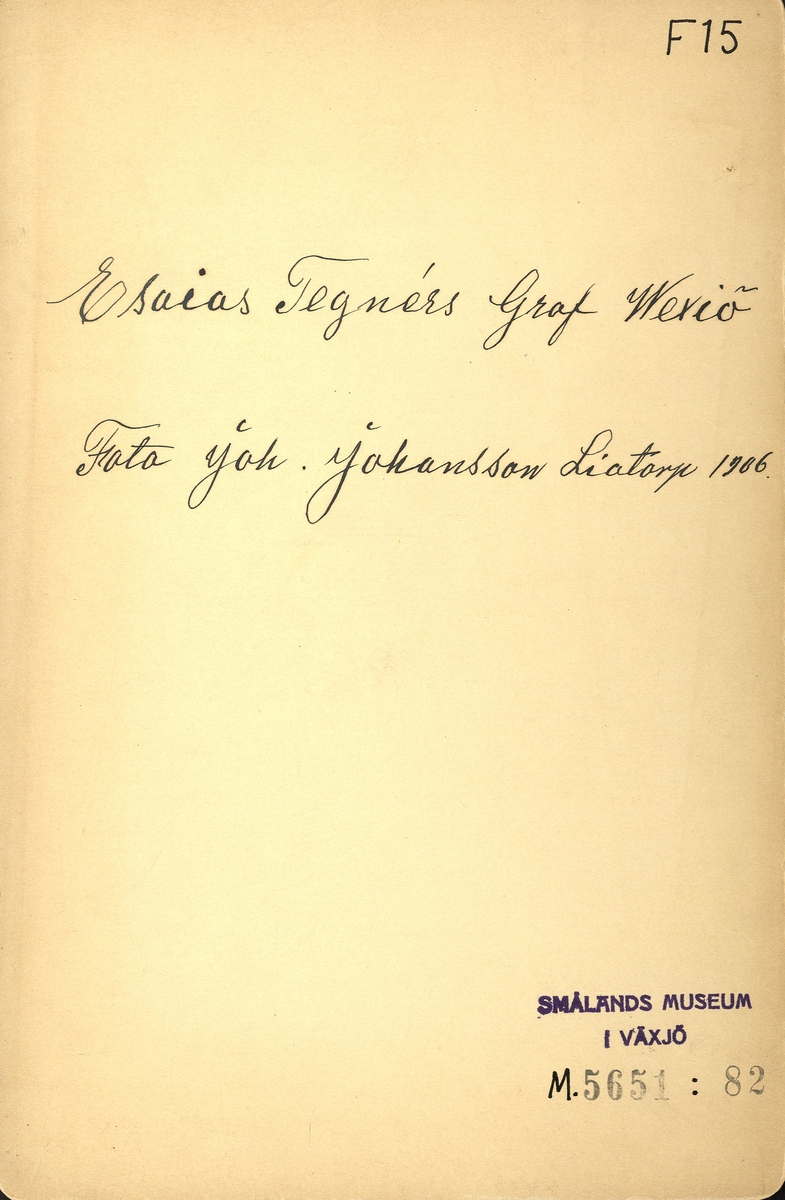 F15
Esaias Tegnérs Graf Wexiö
Foto Joh. Johansson Liatorp 1906.
SMÅLANDS MUSEUM
I VÄXJÖ
M.5651 : 82